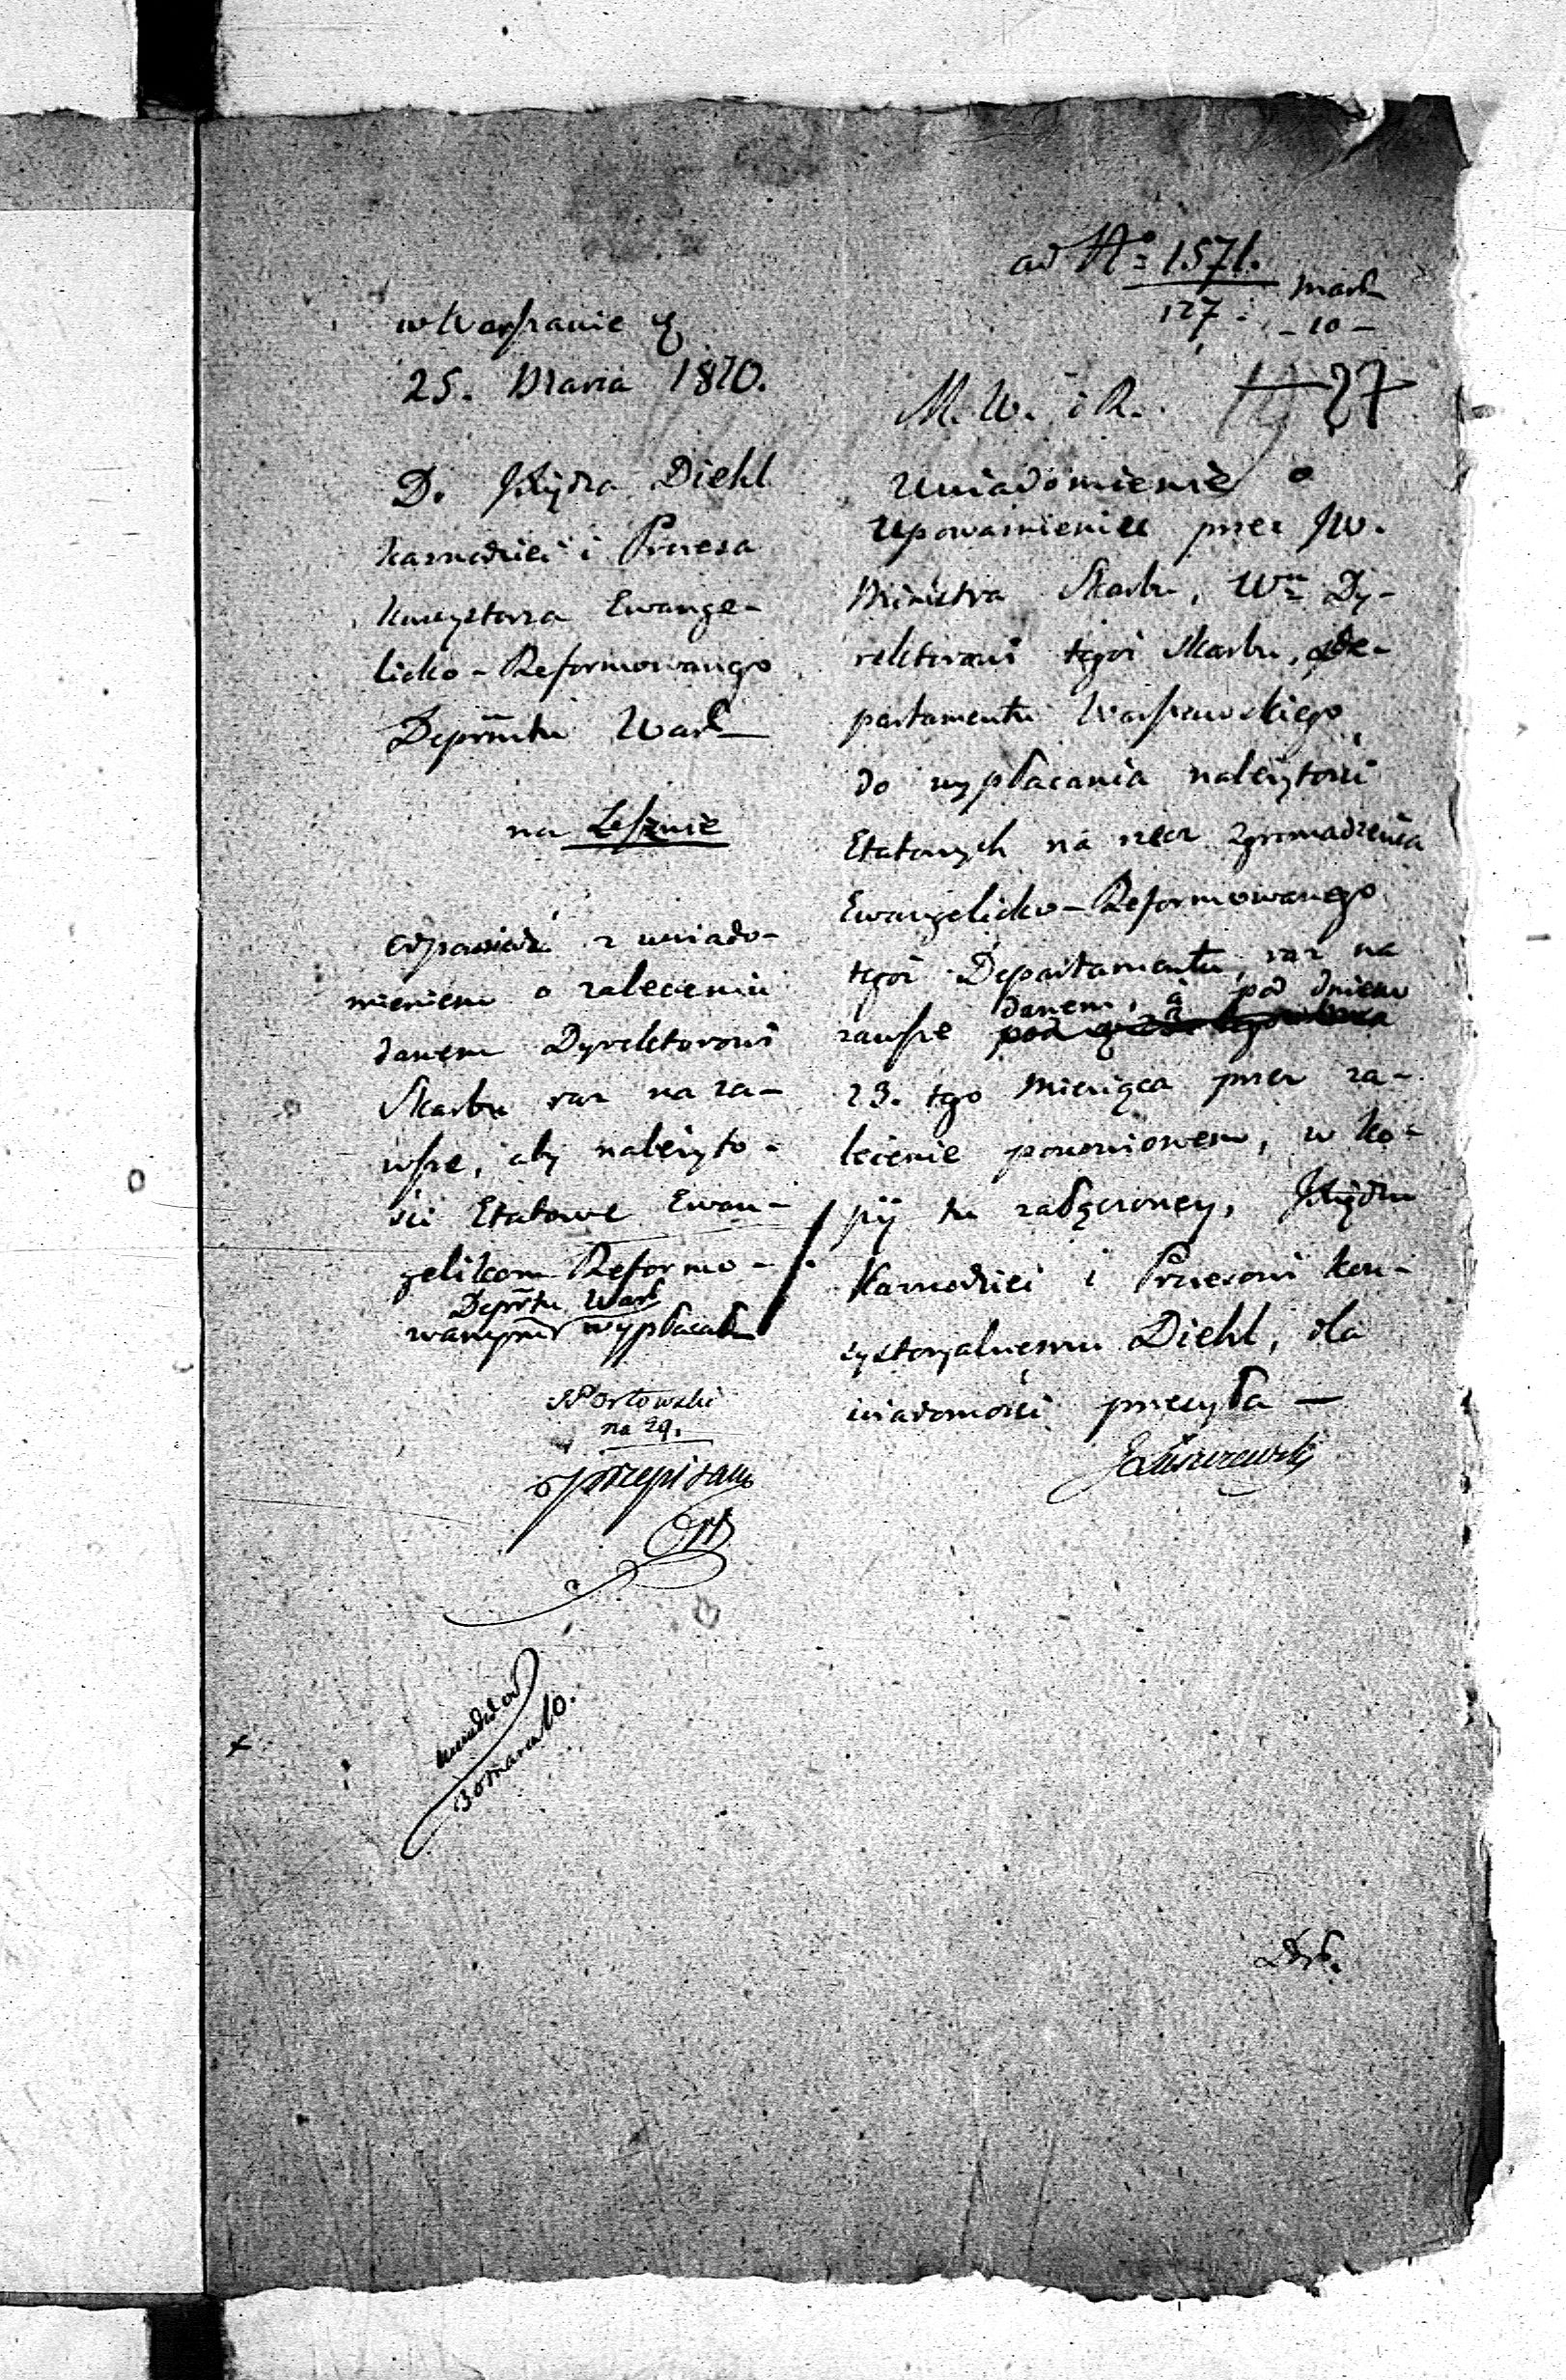 ad No 1571.
127. Mart
- 10 -
w Warszawie d
25. Marca 1810.
D. Xiędza Diehl
Kaznodziei i Prezesa
Konsystorza Ewange-
licko-Reformowanego
Deprmtu Warš
na Lesznie
Odpowiedź z uwiado-
mieniem o zaleceniu
danem Dyrektorowi
Skarbu raz na za-
wsze, aby należyto-
ści Etatowe Ewan-
gelikom Reformo-
Deprtu Warš
wanym wypłacał
Orłowski
na 29.
przepisano
M. W. i R.
27
Uwiadomienie o
upoważnieniu przez JW.
Ministra Skarbu, Wn Dy-
rektorowi tegoż Skarbu, De-
partamentu Warszawskiego
do wypłacania należytości
Etatowych na rzecz zgromadzenia
Ewangelicko-Reformowanego
tegoż Departamentu, raz na
danem, a pod dniem
zawsze
23. tgo Miesiąca przez za-
lecenie ponowionem, w Ko-
pij tu załączoney, Xiędzu
Kaznodziei i Prezesowi Kon-
systoryalnemu Diehl, dla
wiadomości przesyła —
JŁuszczewski
30 marca 10.